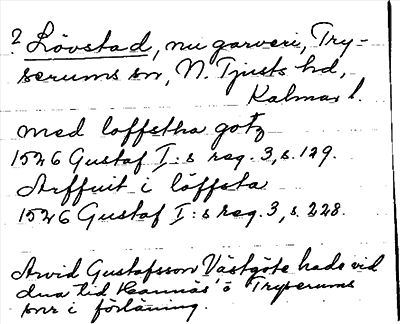 ? Lövstad, nu garveri, Try-
serums sn, N. Tjusts hd,
Kalmar l.
med loffstha gotz
1526 Gustaf I:s reg. 3, s. 129.
Arffuit i löffsta
1526 Gustaf I:s reg. 3, s. 228.
Arvid Gustafsson Västgöte hade vid
dna tid Hannäs o Tryserums
snr i förläning.